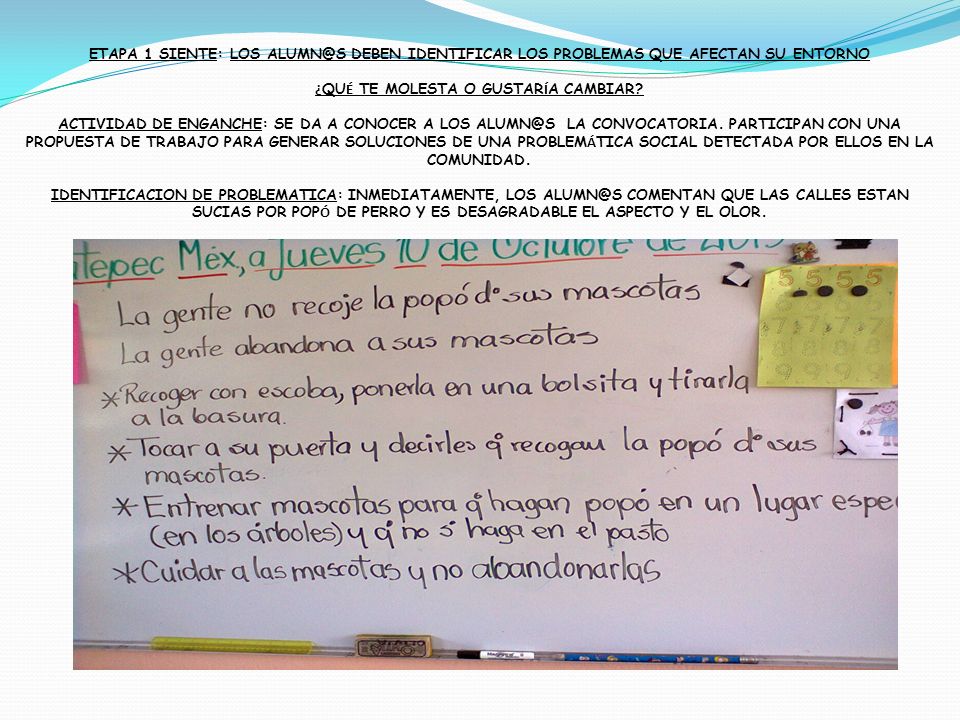 ETAPA 1 SIENTE: LOS ALUMN@S DEBEN IDENTIFICAR LOS PROBLEMAS QUE AFECTAN SU ENTORNO
¿QUÉ TE MOLESTA O GUSTARÍA CAMBIAR?
ACTIVIDAD DE ENGANCHE: SE DA A CONOCER A LOS ALUMN@S LA CONVOCATORIA. PARTICIPAN CON UNA
PROPUESTA DE TRABAJO PARA GENERAR SOLUCIONES DE UNA PROBLEMÁTICA SOCIAL DETECTADA POR ELLOS EN LA
COMUNIDAD.
IDENTIFICACION DE PROBLEMATICA: INMEDIATAMENTE, LOS ALUMN@S COMENTAN QUE LAS CALLES ESTAN
SUCIAS POR POPÓ DE PERRO Y ES DESAGRADABLE EL ASPECTO Y EL OLOR.
atepec Méx, a Jueves 10 de Octubre de 2013
La gente no recoje la popó d° sus mascotas
La gente abandona a sus mascotas
* Recoger con escoba, ponerla en una bolsita y tirarla
a la basura.
* Tocar a su puerta y decirles q' recogan la popó d° sus
mascotas.
* Entrenar mascotas para q' hagan popó en un lugar espec
(en los árboles) y q' no s' haga en el pasto
* Cuidar a las mascotas y no abandonarlas
5 5 5 5 5
7 7 7 7
8 8 8 8
9 9 9 9